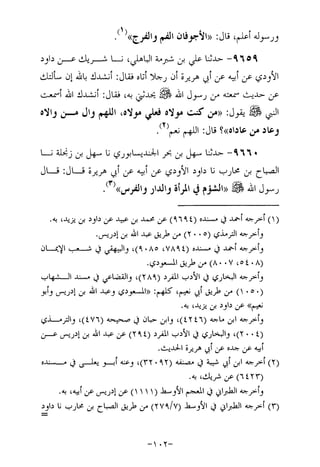 ورسوله أعلم، قال: «الأجوفان الفم والفرج»(١).
٩٦٥٩- حدثنا علي بن شبرمة الباهلي، نـا شـريك عـن داود
الأودي عن أبيه عن أبي هريرة أن رجلا أتاه فقال: أنشدك بالله إن سألتك
عن حديث سمعته من رسول الله ﷺ يحدثني به، فقال: أنشدك الله أسمعت
النبي ﷺ يقول: «من كنت مولاه فعلي مولاه، اللهم وال مـن والاه
وعاد من عاداه»؟ قال: اللهم نعم(٢).
٩٦٦٠- حدثنا سهل بن بحر الجنديسابوري نا سهل بن زنجلة نـا
الصباح بن محارب نا داود الأودي عن أبيه عن أبي هريرة قـال: قـال
رسول الله ﷺ «الشؤم في المرأة والدار والفرس»(٣).
(١) أخرجه أحمد في مسنده (٩٦٩٤) عن محمد بن عبيد عن داود بن يزيد، به.
وأخرجه الترمذي (٢٠٠٥) من طريق عبد الله بن إدريس.
وأخرجه أحمد في مسنده (٧٨٩٤، ٩٠٨٥)، والبيهقي في شـعب الإيمـان
(٥٤٠٨، ٨٠٠٧) من طريق المسعودي.
وأخرجه البخاري في الأدب المفرد (٢٨٩)، والقضاعي في مسند الـشهاب
(١٠٥٠) من طريق أبي نعيم، كلهم: «المسعودي وعبد الله بن إدريس وأبو
نعيم» عن داود بن يزيد، به.
وأخرجه ابن ماجه (٤٢٤٦)، وابن حبان في صحيحه (٤٧٦)، والترمـذي
(٢٠٠٤)، والبخاري في الأدب المفرد (٢٩٤) عن عبد الله بن إدريس عـن
أبيه عن جده عن أبي هريرة الحديث.
(٢) أخرجه ابن أبي شيبة في مصنفه (٣٢٠٩٢)، وعنه أبـو يعلـى في مـسنده
(٦٤٢٣) عن شريك، به.
وأخرجه الطبراني في المعجم الأوسط (١١١١) عن إدريس عن أبيه، به.
(٣) أخرجه الطبراني في الأوسط (٢٧٩/٧) من طريق الصباح بن محارب نا داود
=
-١٠٢-